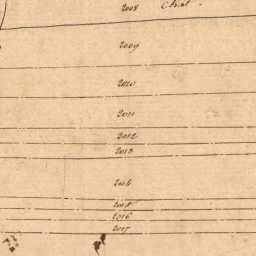 2008
2009
2010
2011
2012
2013
2014
2015
2016
2017